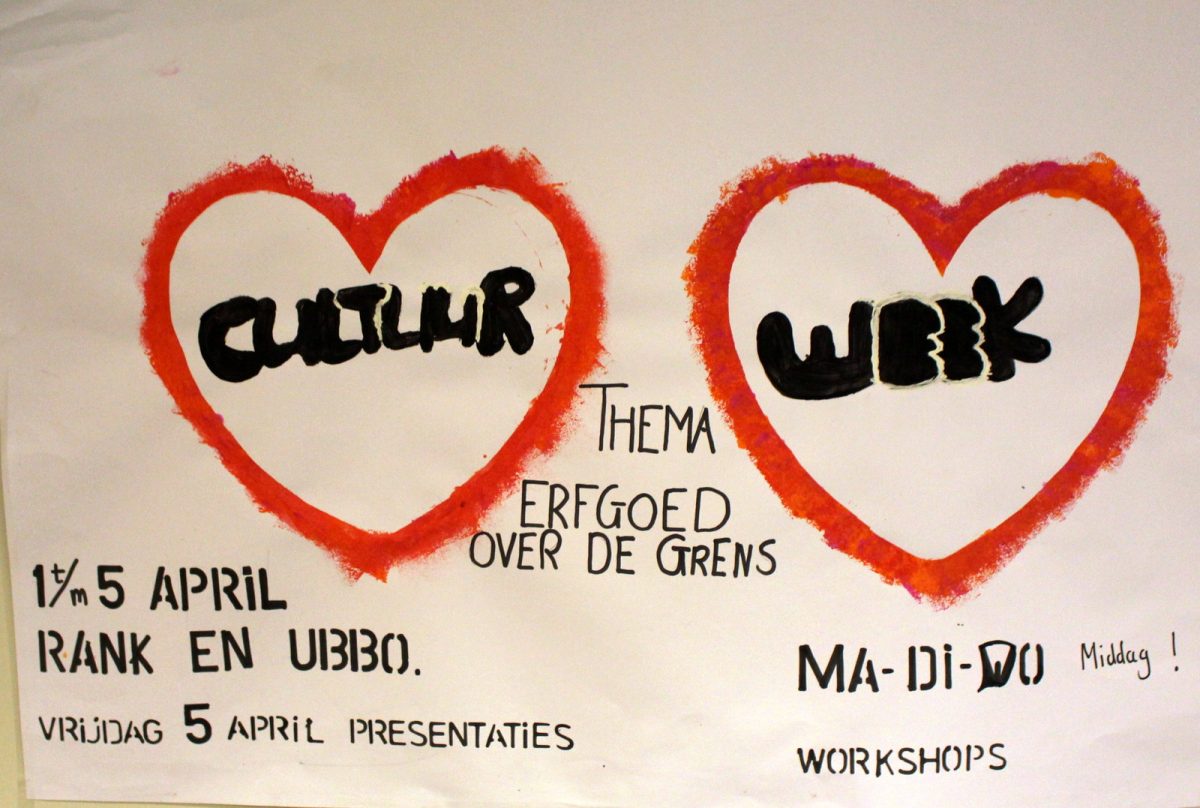 CULTUUR
WEEK
THEMA
ERFGOED
OVER DE GRENS
1 t/m 5 APRIL
RANK EN UBBO.
VRIJDAG 5 APRIL PRESENTATIES
MA-DI-WO Middag !
WORKSHOPS